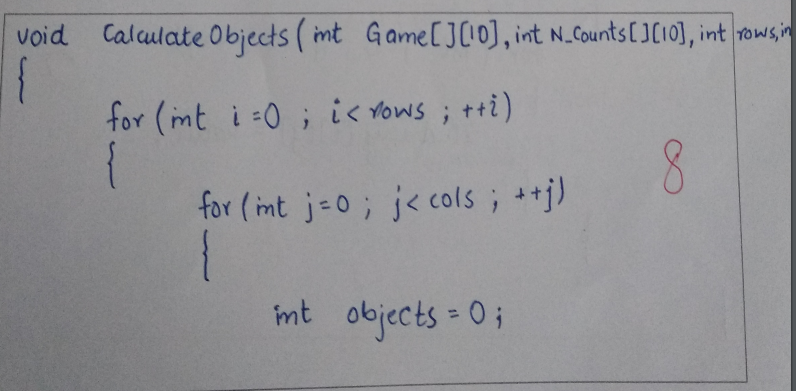 void Calculate Objects ( int Game[][10], int N_Counts[][10], int rows, in
{
for (int i=0 ; i< rows ; ++i)
{
8
for (int j=0 ; j< cols ; ++j)
{
int objects = 0 ;